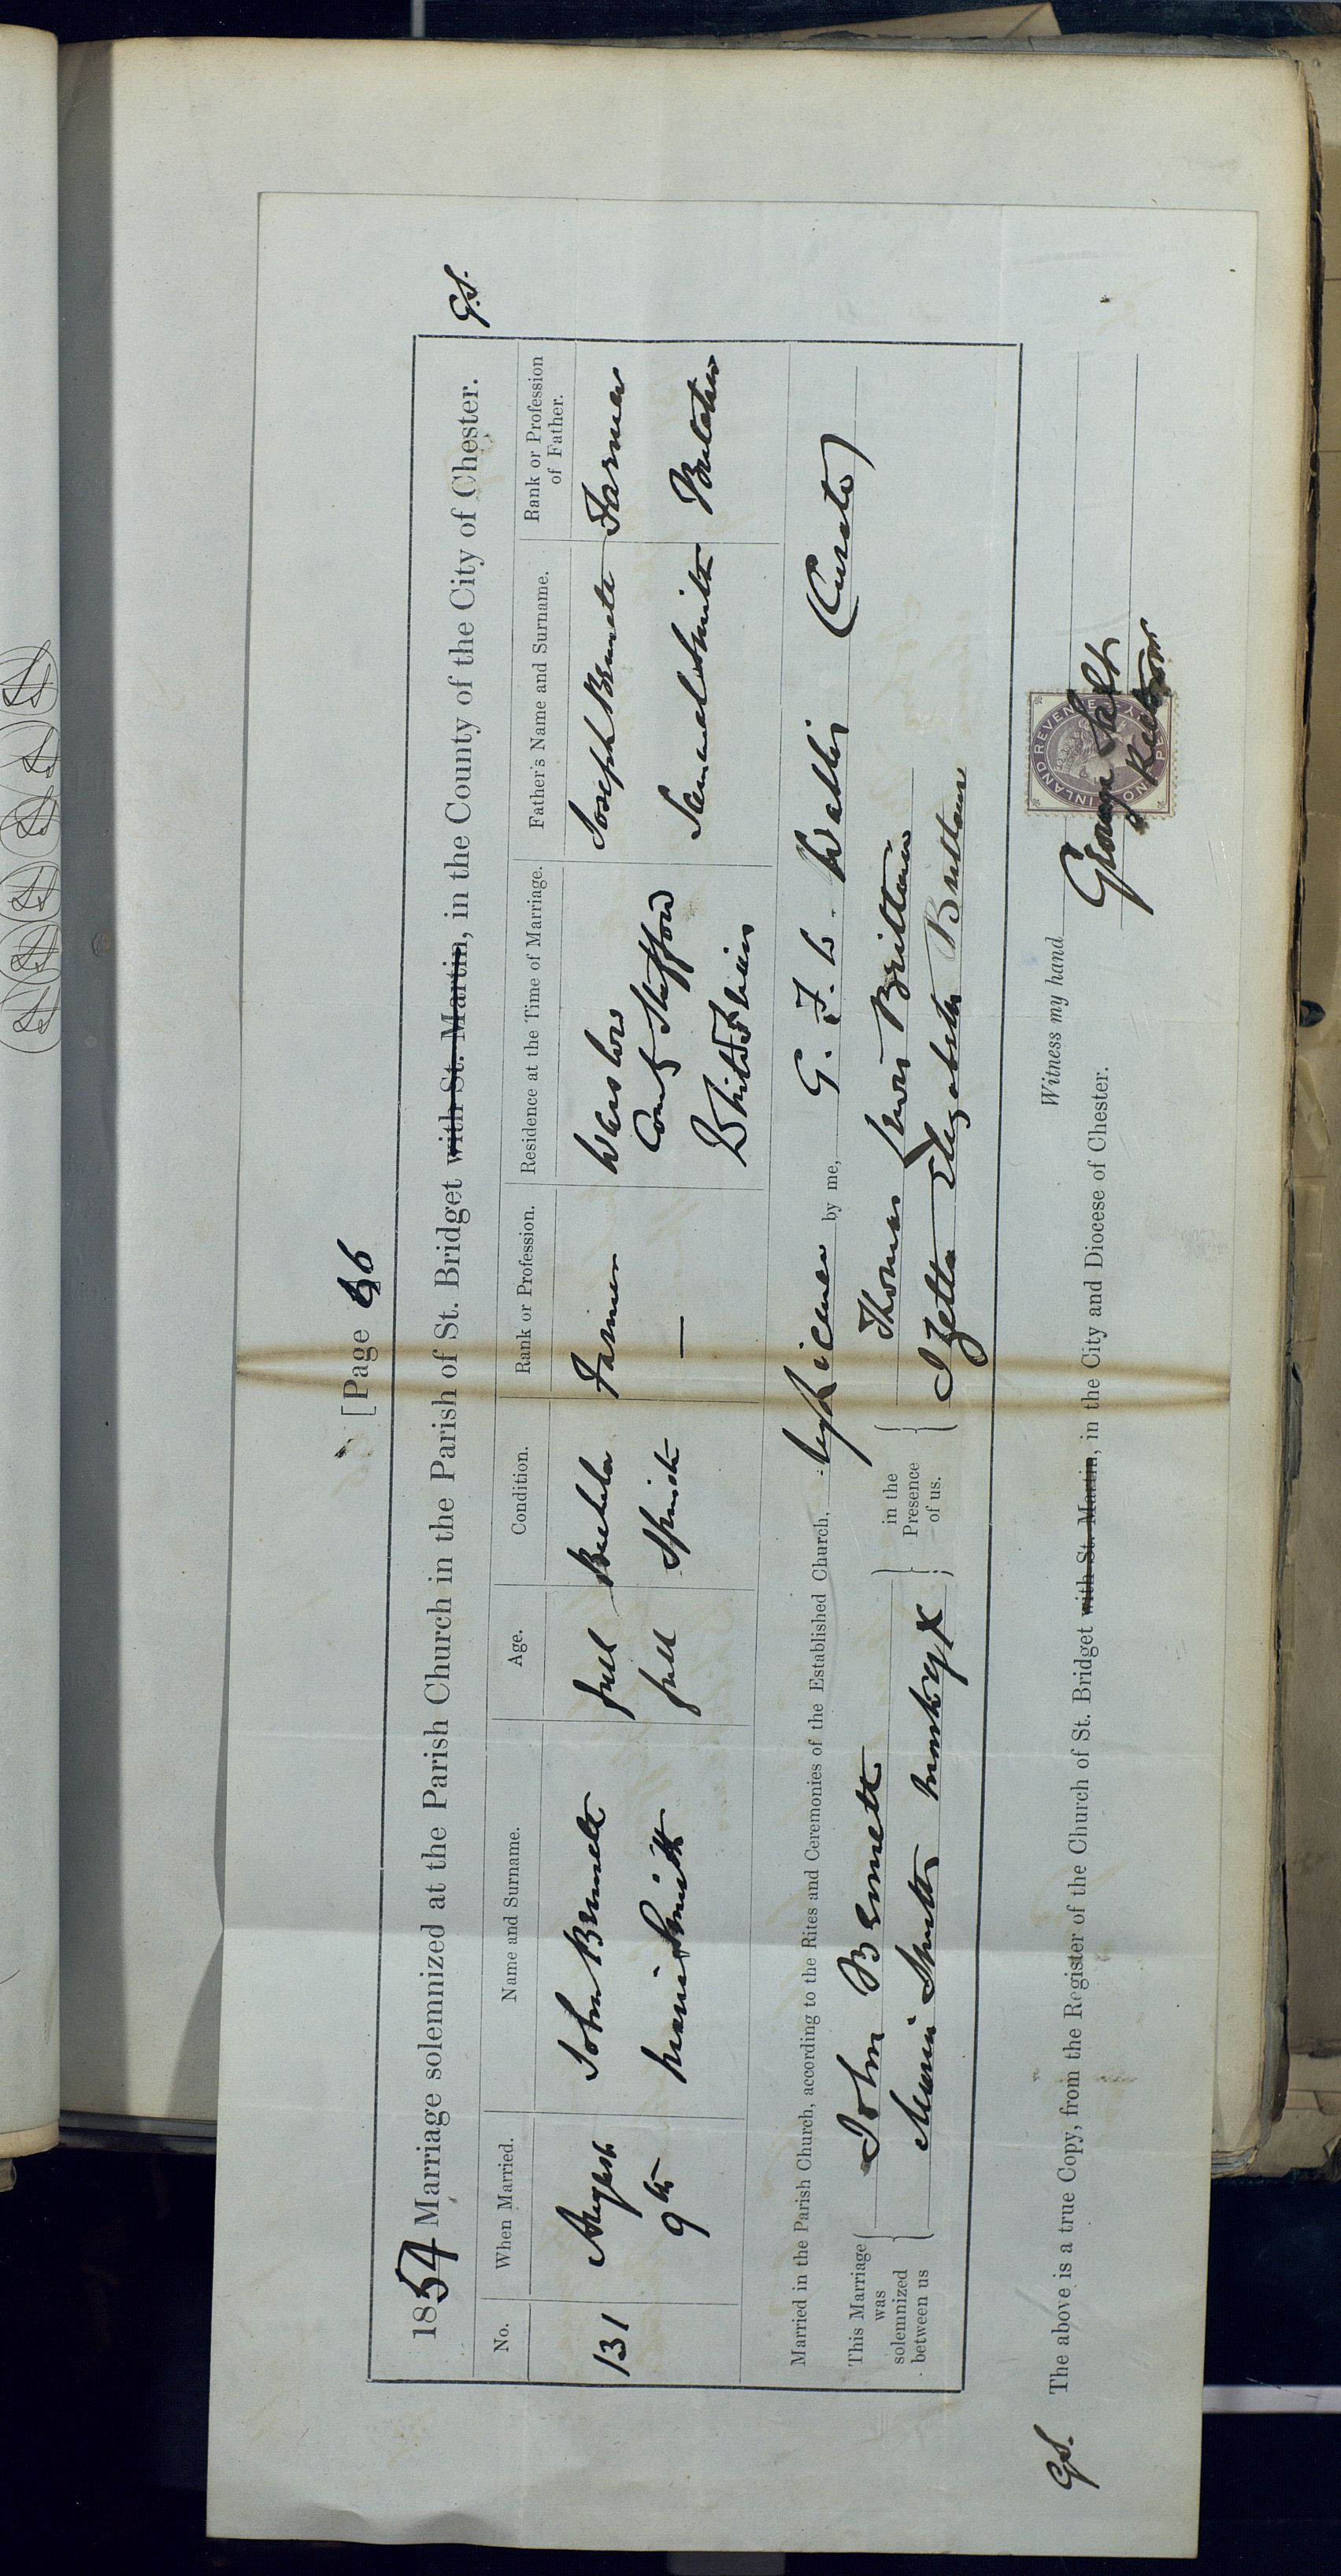 [Page 66
1854 Marriage solemnized at the Parish Church in the Parish of St. Bridget with St. Martin, in the County of the City of Chester.
G.S.
No.
When Married.
Name and Surname.
Age.
Condition.
Rank or Profession.
Residence at the Time of Marriage.
Father's Name and Surname.
Rank or Profession
of Father.
131
August
9th
John Bennett
full
Bachelor
Farmer
County Stafford
Joseph Bennett
Farmer
Maria Smith
full
Spinster
—
White Friars
Samuel Smith
Butcher
Married in the Parish Church, according to the Rites and Ceremonies of the Established Church, by Licence by me, G. F. W. (Curate)
This Marriage
was
solemnized
between us
John Bennett
Maria Smith mark of X
in the
Presence
of us.
Thomas Lewis Brittain
Izetta Elizabeth Brittain
Witness my hand George Salt
Rector
INLAND REVENUE
G.S. The above is a true Copy, from the Register of the Church of St. Bridget with St. Martin, in the City and Diocese of Chester.